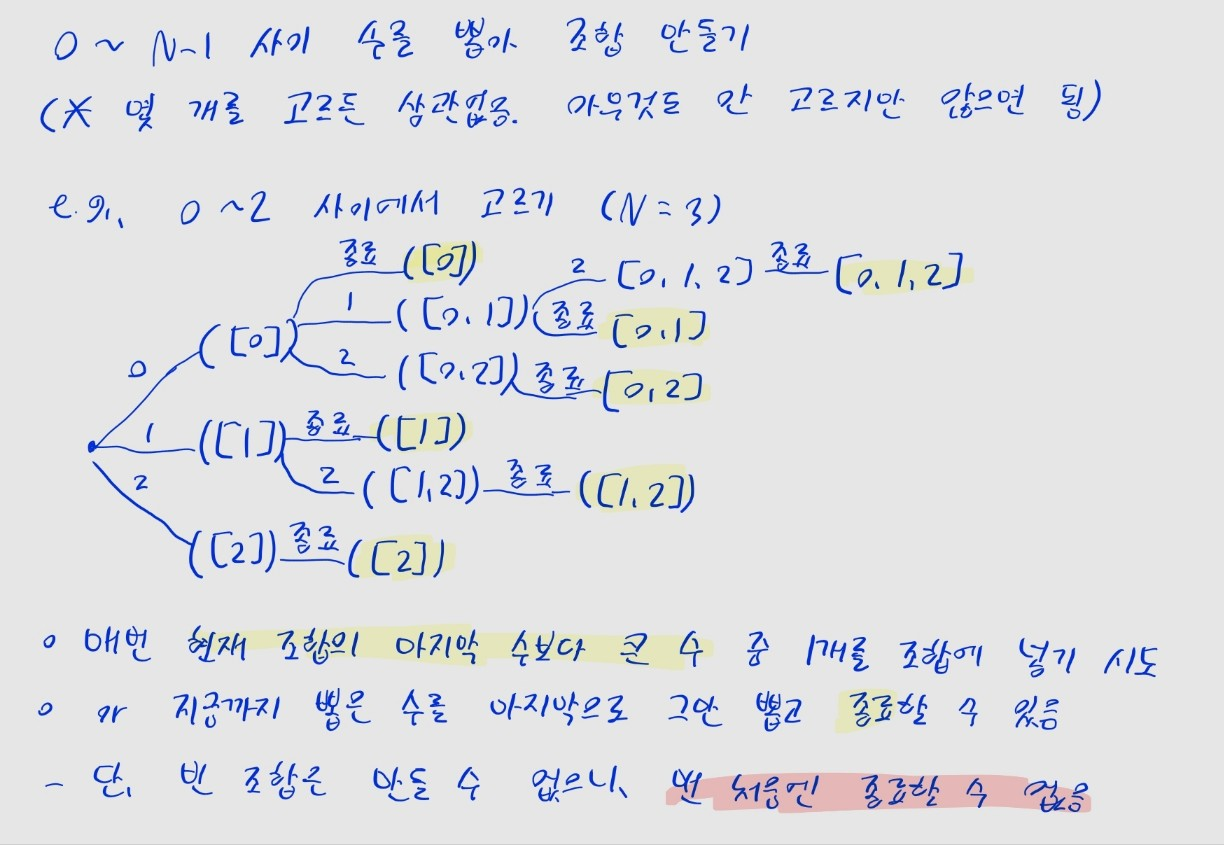 0 ~ N-1 사이 수를 뽑아 조합 만들기
(* 몇 개를 고르든 상관없음. 아무것도 안 고르지만 않으면 됨)
e.g., 0 ~2 사이에서 고르기 (N = 3)
종료 ([0])
2 [0, 1, 2] 종료 [0, 1, 2]
1 ([0, 1]) 종료 [0,1]
0 ([0])
2 ([0,2]) 종료 [0,2]
1 ([1]) 종료 ([1])
2 ([1,2]) 종료 ([1,2])
2 ([2]) 종료 ([2])
o 매번 현재 조합의 마지막 수보다 큰 수 중 1개를 조합에 넣기 시도
o or 지금까지 뽑은 수를 마지막으로 그만 뽑고 종료할 수 있음
- 단, 빈 조합은 만들 수 없으니, 맨 처음엔 종료할 수 없음